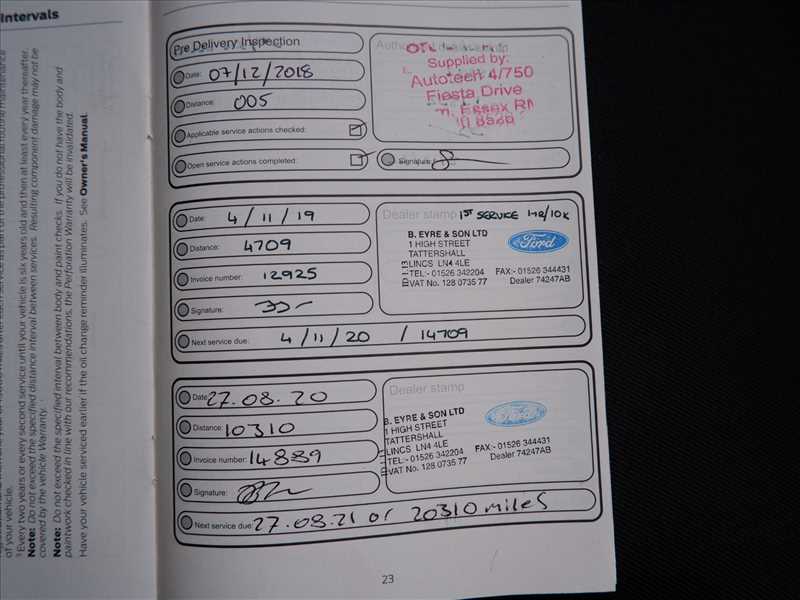 Intervals
Pre Delivery Inspection
Date: 07/12/2018
Distance: 005
Applicable service actions checked:
Open service actions completed:
Supplied by:
Autotech 4/750
Fiesta Drive
Essex RM
Signature:
Date: 4/11/19
Distance: 4709
Invoice number: 12925
Signature:
Next service due: 4/11/20 / 14709
Dealer stamp 1ST SERVICE
B. EYRE & SON LTD
1 HIGH STREET
TATTERSHALL
LINCS LN4 4LE
TEL:- 01526 342204 FAX:- 01526 344431
VAT No. 128 0735 77 Dealer 74247AB
Ford
Date: 27.08.20
Distance: 10310
Invoice number: 14889
Signature:
Next service due: 27.08.21 or 20310 miles
Dealer stamp
B. EYRE & SON LTD
1 HIGH STREET
TATTERSHALL
LINCS LN4 4LE
TEL:- 01526 342204 FAX:- 01526 344431
VAT No. 128 0735 77 Dealer 74247AB
Ford
of your vehicle.
Every two years or every second service until your vehicle is six years old and then at least every year thereafter.
Note: Do not exceed the specified distance interval between services. Resulting component damage may not be
covered by the vehicle Warranty.
Note: Do not exceed the specified interval between body and paint checks. If you do not have the body and
paintwork checked in line with our recommendations, the Perforation Warranty will be invalidated.
Have your vehicle serviced earlier if the oil change reminder illuminates. See Owner's Manual.
23